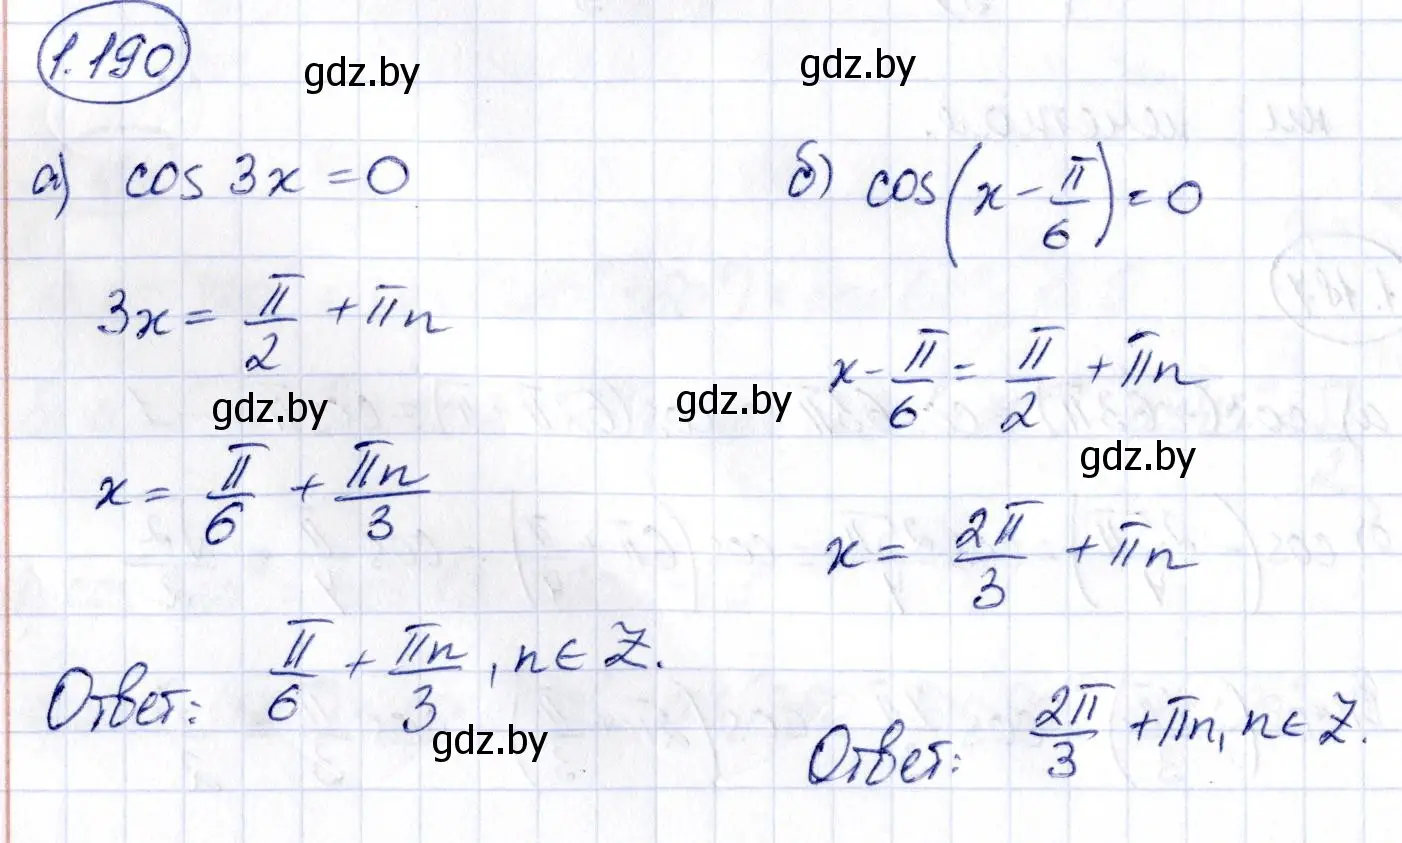 1.190
gdz.by
gdz.by
а) cos 3x = 0
3x = π/2 + πn
gdz.by
x = π/6 + πn/3
Ответ: π/6 + πn/3, n ∈ Z.
gdz.by
б) cos(x - π/6) = 0
x - π/6 = π/2 + πn
gdz.by
gdz.by
x = 2π/3 + πn
Ответ: 2π/3 + πn, n ∈ Z.
1.187